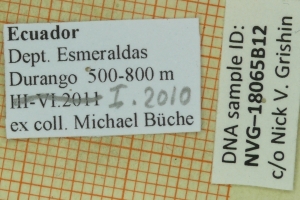 Ecuador
Dept. Esmeraldas
Durango 500-800 m
III-VI.2011 I.2010
ex coll. Michael Büche
DNA sample ID:
NVG-18065B12
c/o Nick V. Grishin